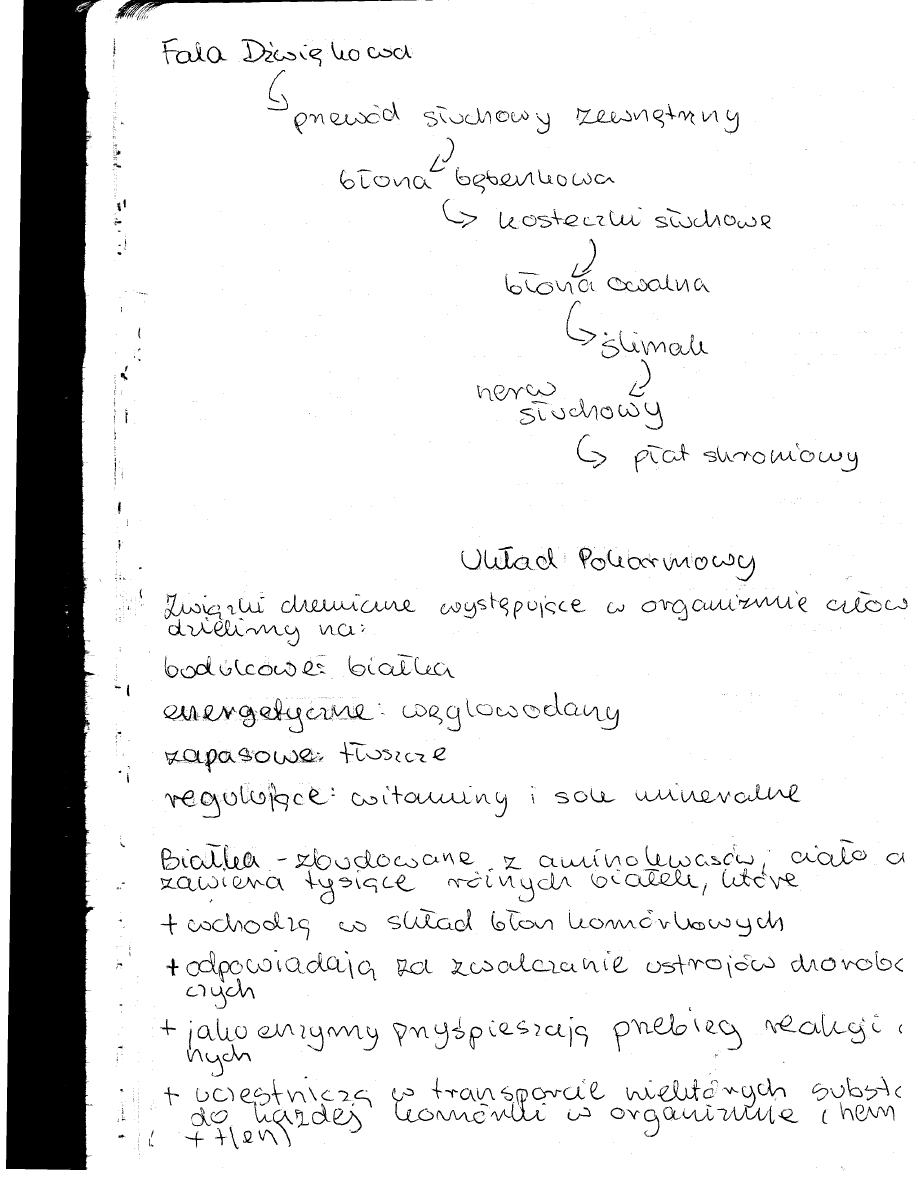 Fala Dźwiękowa
przewód słuchowy zewnętrzny
błona bębenkowa
kosteczki słuchowe
błona owalna
ślimak
nerw
słuchowy
płat skroniowy
Układ Pokarmowy
Związki chemiczne występujące w organizmie człow
dzielimy na:
budulcowe: białka
energetyczne: węglowodany
zapasowe: tłuszcze
regulujące: witaminy i sole mineralne
Białka - zbudowane z aminokwasów, ciało c
zawiera tysiące różnych białek, które
+ wchodzą w skład błon komórkowych
+ odpowiadają za zwalczanie ustrojów chorobo
czych
+ jako enzymy przyśpieszają przebieg reakcji c
nych
+ uczestniczą w transporcie niektórych substc
do każdej komórki w organizmie (hem
+ tlen)